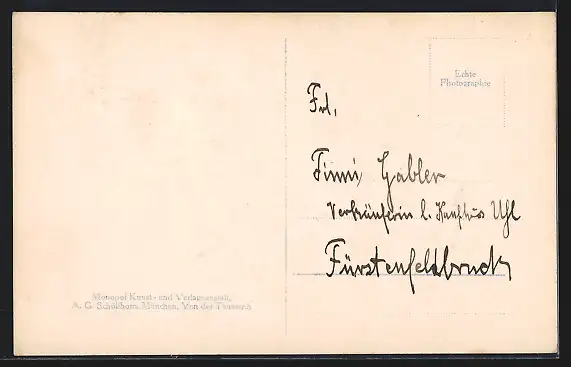 Echte
Photographie
Frl.
Timmi Gabler
Verkäuferin b. Kaufhs Uhl
Fürstenfeldbruck
Monopol Kunst- und Verlagsanstalt,
A. G. Schöllhorn, München, Von der Tannstr.